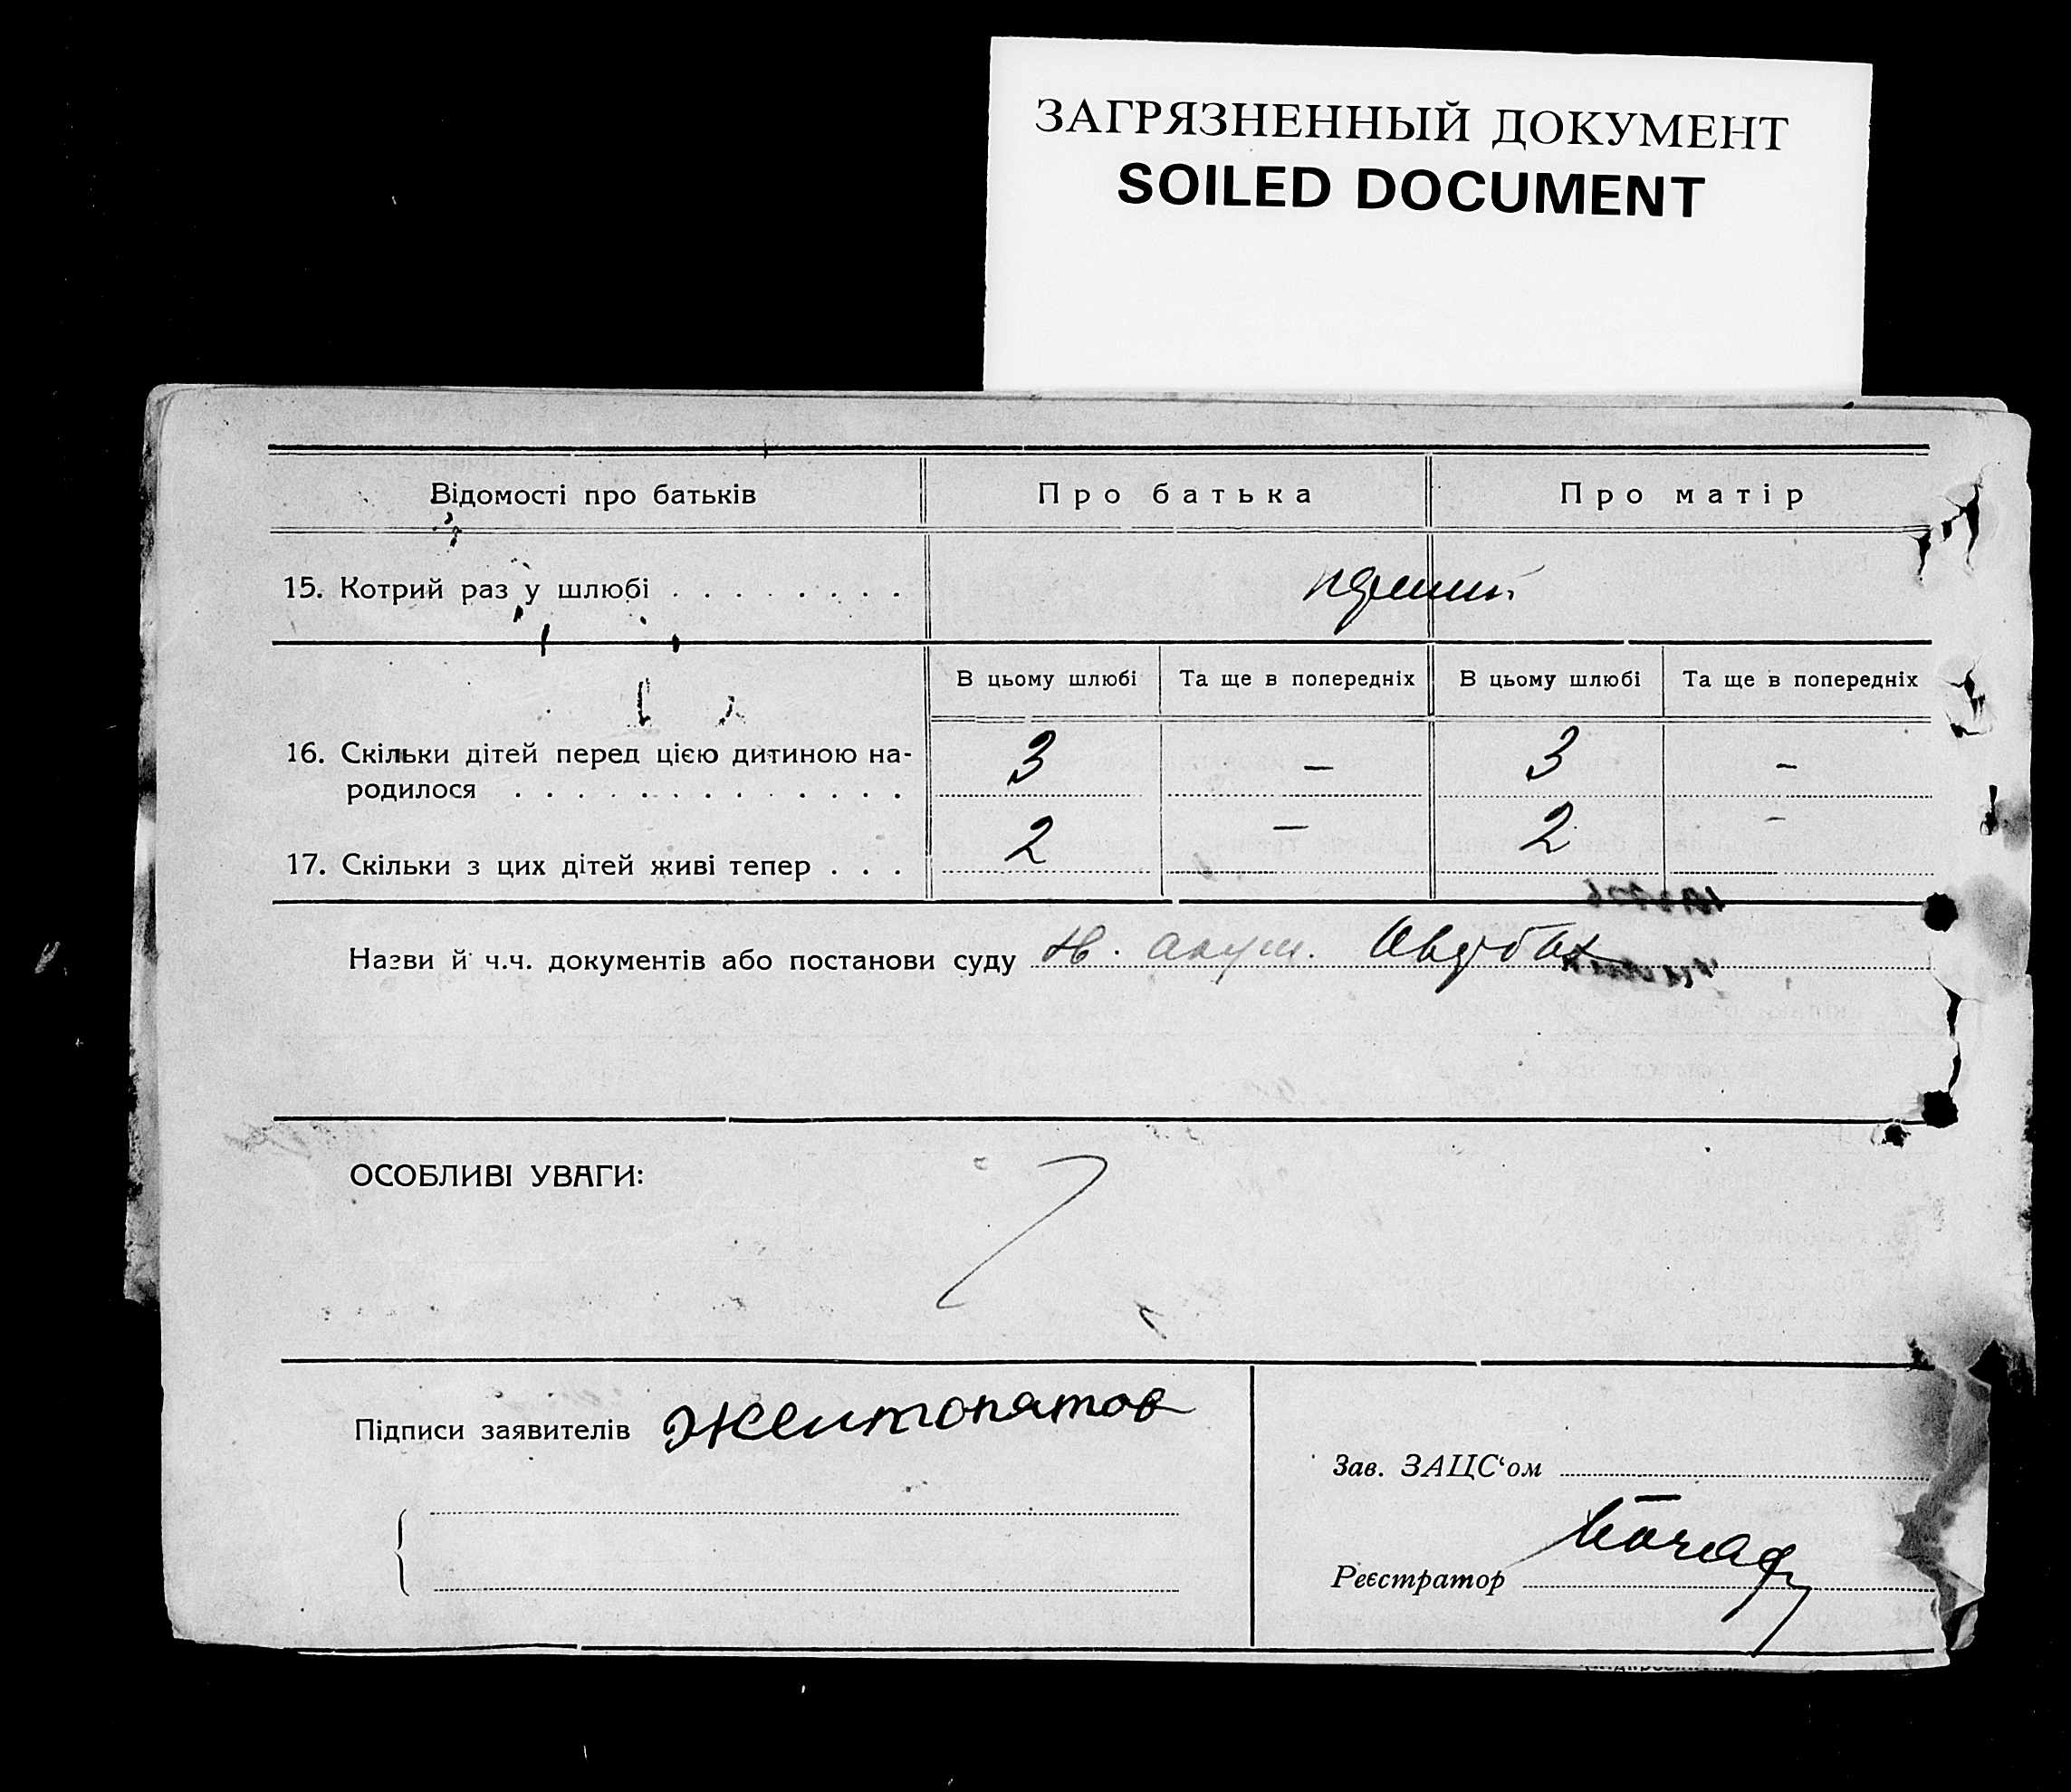 ЗАГРЯЗНЕННЫЙ ДОКУМЕНТ
SOILED DOCUMENT
Відомості про батьків Про батька Про матір
15. Котрий раз у шлюбі
В цьому шлюбі Та ще в попередніх В цьому шлюбі Та ще в попередніх
16. Скільки дітей перед цією дитиною на-
родилося 3 — 3 —
17. Скільки з цих дітей живі тепер 2 — 2 —
Назви й ч.ч. документів або постанови суду
ОСОБЛИВІ УВАГИ:
Підписи заявителів
Зав. ЗАЦС‘ом
Реєстратор